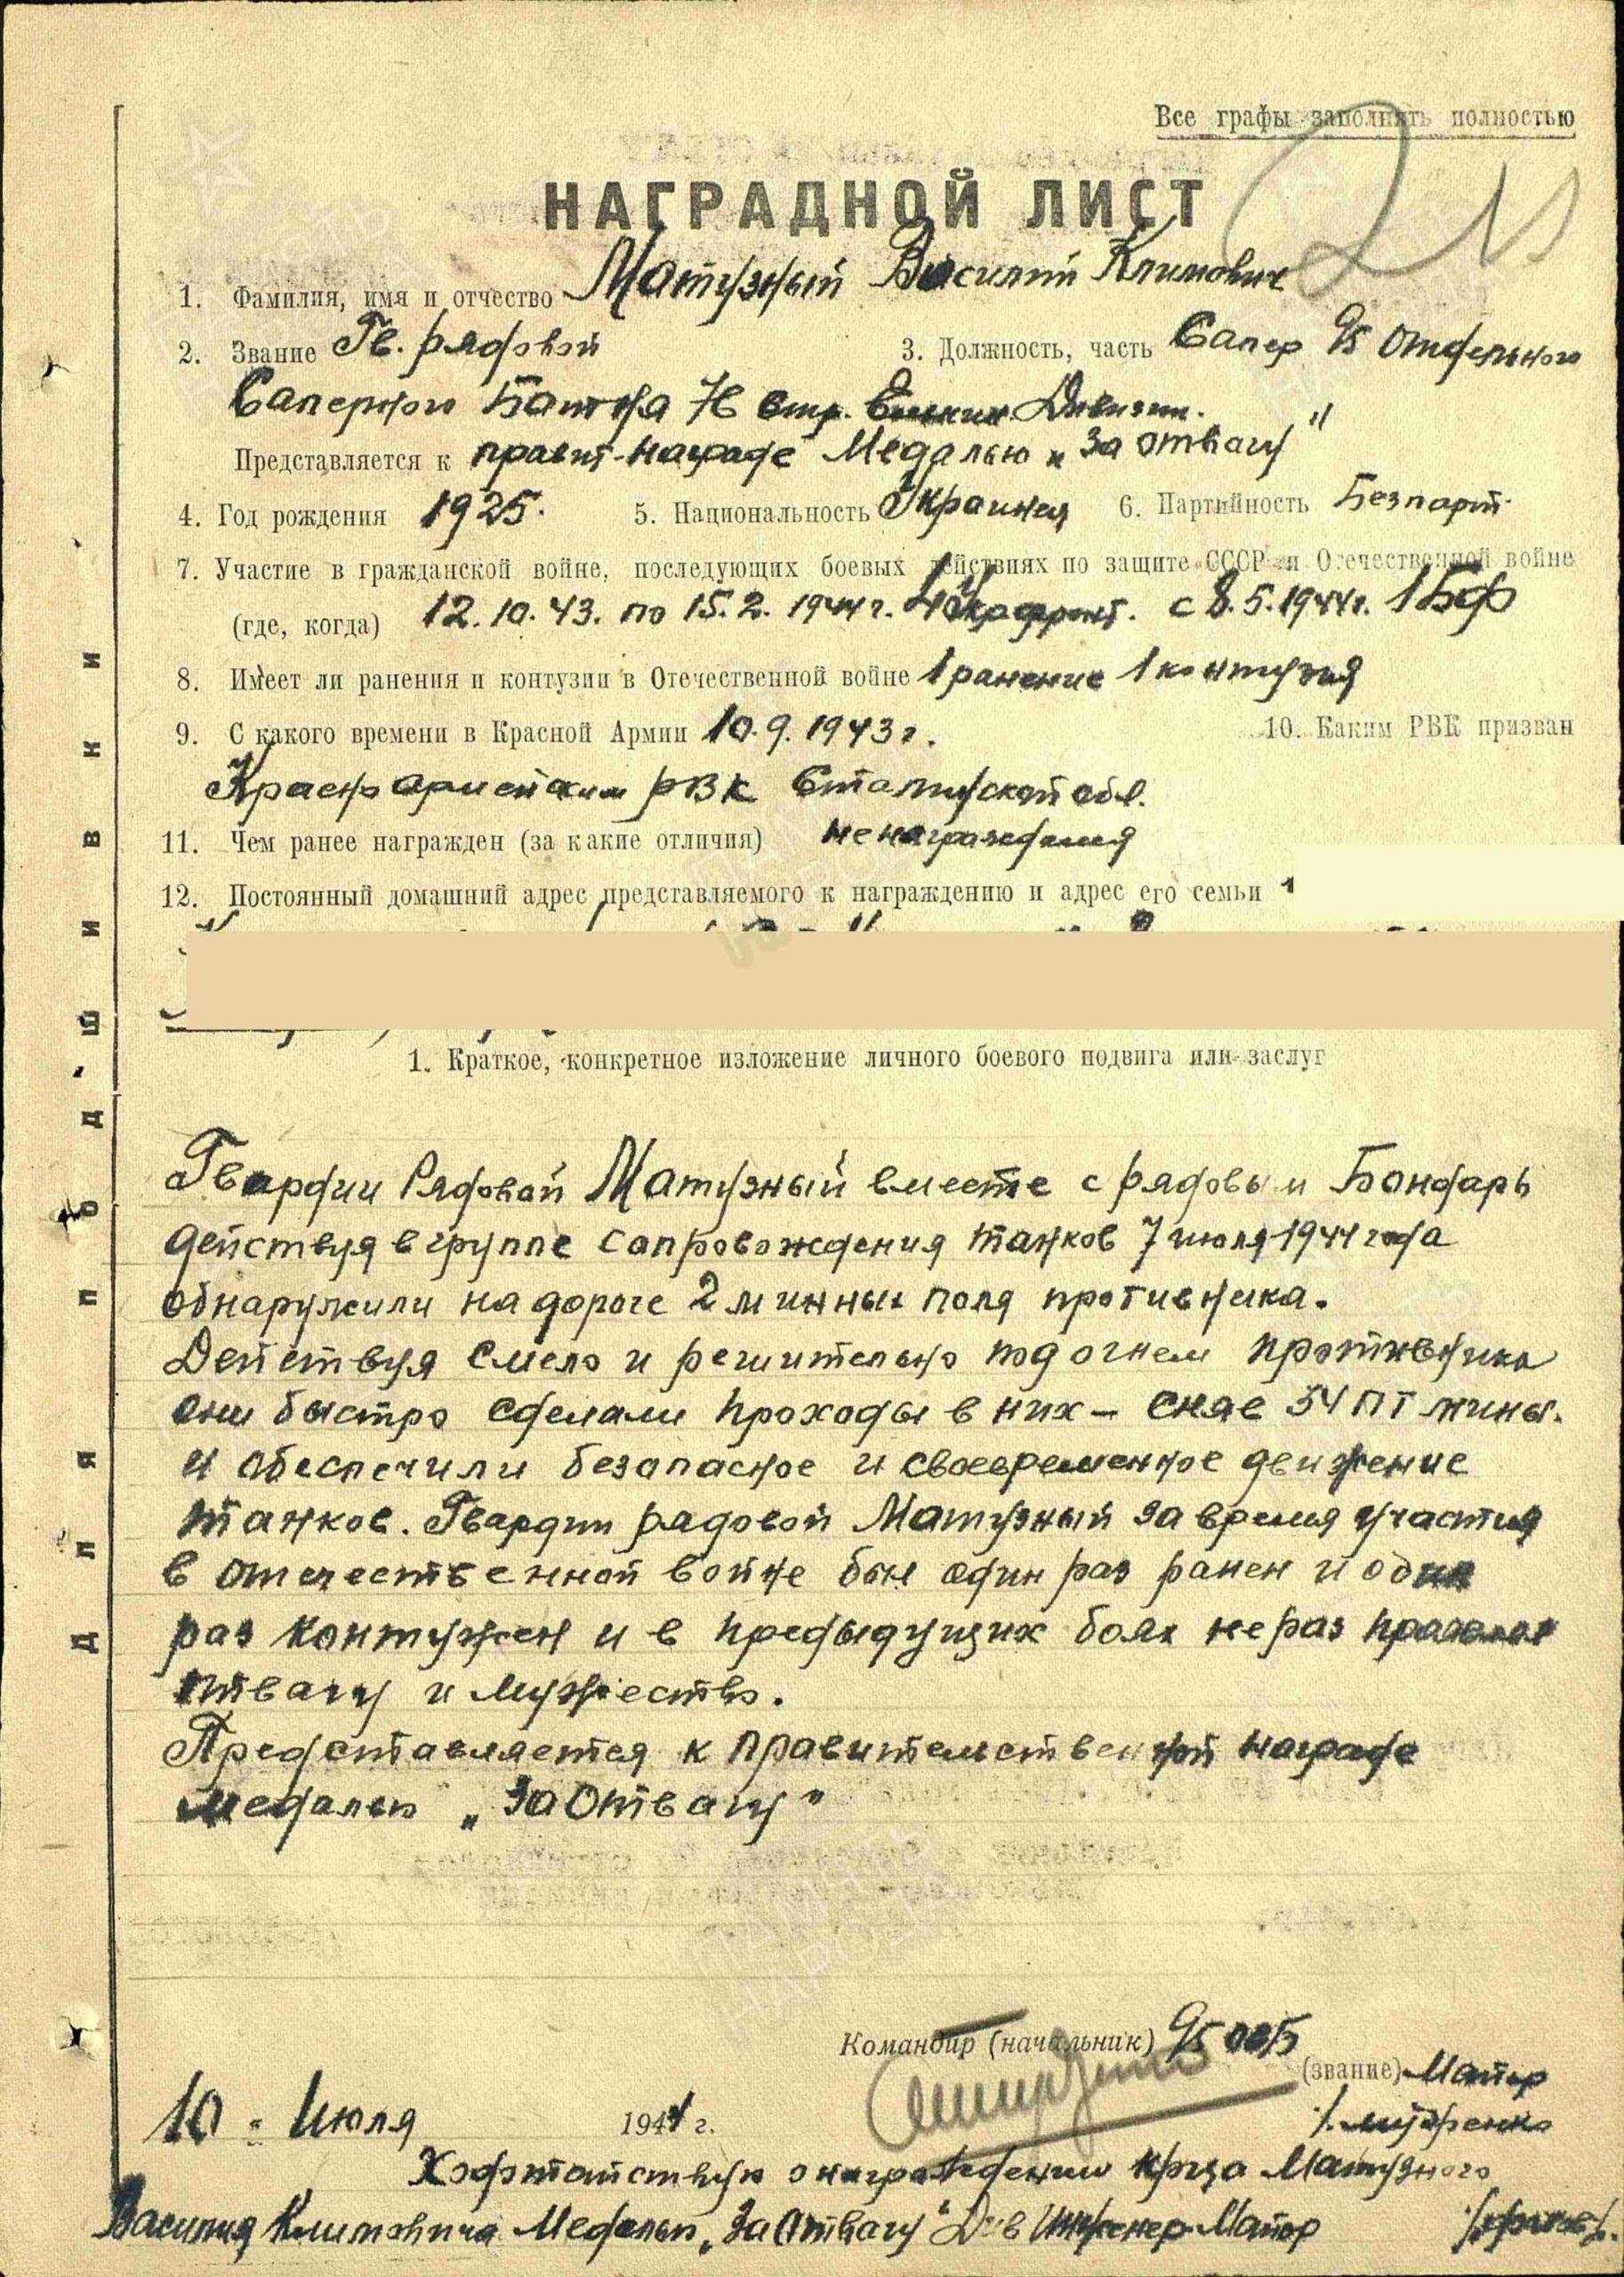 Все графы заполнять полностью
НАГРАДНОЙ ЛИСТ
1. Фамилия, имя и отчество Матузный Василий Климович
2. Звание Гв. рядовой 3. Должность, часть Сапер 95 Отдельного
Саперного Бат-на 76 стр. Дивизии.
Представляется к правит. награде Медалью „За отвагу"
4. Год рождения 1925. 5. Национальность Украинец 6. Партийность Безпарт.
7. Участие в гражданской войне, последующих боевых действиях по защите СССР и Отечественной войне
(где, когда) 12.10.43. по 15.2.1944г. 4 Укр фронт. с 8.5.1944г. 1БФ
8. Имеет ли ранения и контузии в Отечественной войне 1 ранение 1 контузия
9. С какого времени в Красной Армии 10.9.1943г. 10. Каким РВК призван
Красноармейским РВК Сталинской обл.
11. Чем ранее награжден (за какие отличия) не награждался
12. Постоянный домашний адрес представляемого к награждению и адрес его семьи
1. Краткое, конкретное изложение личного боевого подвига или заслуг
Гвардии Рядовой Матузный вместе с рядовым Бондарь
действуя в группе сопровождения танков 7 июля 1944 года
обнаружили на дороге 2 минных поля противника.
Действуя смело и решительно под огнем противника
они быстро сделали проходы в них – сняв 54 ПТ мины.
и обеспечили безопасное и своевременное движение
танков. Гвардии рядовой Матузный за время участия
в отечественной войне был один раз ранен и один
раз контужен и в предыдущих боях не раз проявлял
отвагу и мужество.
Представляется к правительственной награде
медалью „За Отвагу"
Командир (начальник) 95 ОСБ
(звание) Майор
10 " Июля 1944 г.
Ходотайствую о награждении кр-ца Матузного
Василия Климовича Медалью „За Отвагу" Див Инженер Майор
Для подшивки